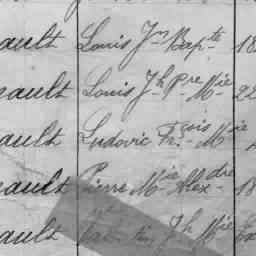 ault Louis Jn Bapte 18
ault Louis Jh Pre Mie 22
ault Ludovic Frçois Mie
ault Pierre Mie Alexdre 18
ault Jh Mie